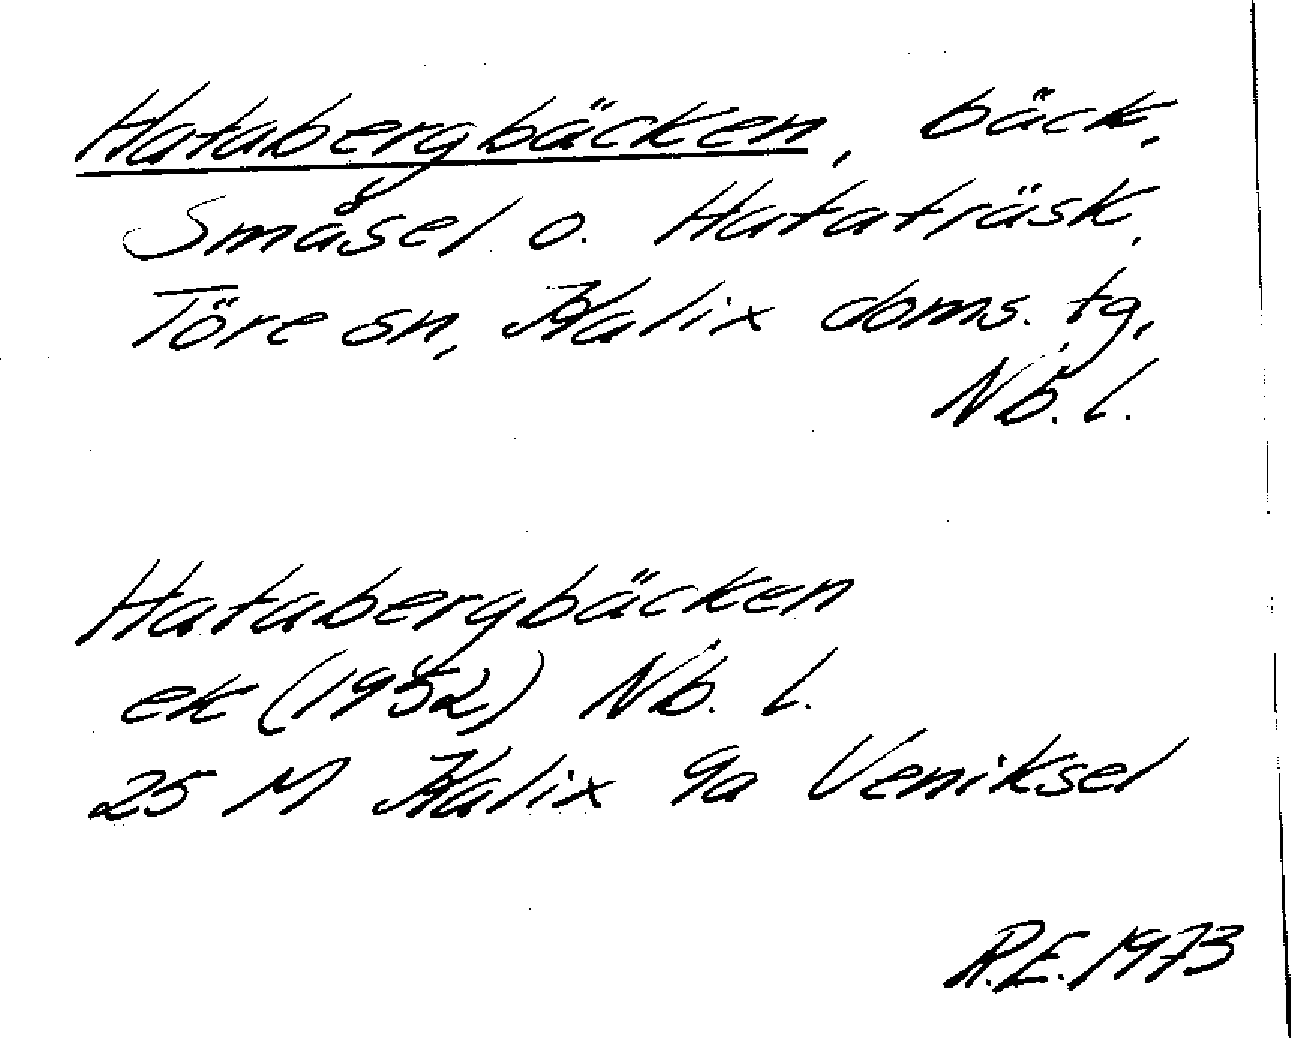 Hatabergbäcken, bäck,
Småsel o. Hataträsk,
Töre sn, Kalix doms. tg,
Nb. l.
Hatabergbäcken
ek (1952) Nb. l.
25 M Kalix 9a Veniksel
R.E. 1973